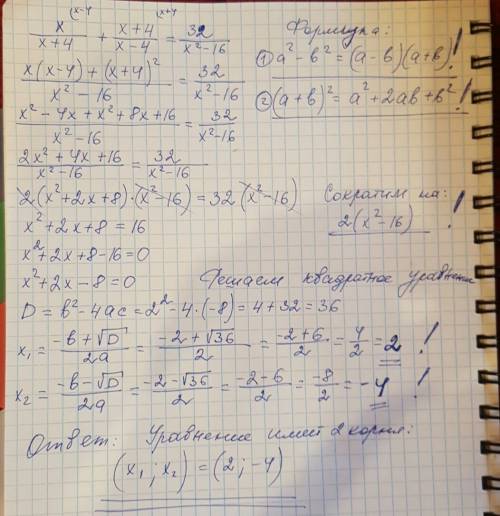 x/(x+4) (x-4 + (x+4)/(x-4) (x+4 = 32/(x²-16)
Формула:
① a² - b² = (a-b)(a+b)!
② (a+b)² = a² + 2ab + b²!
(x(x-4) + (x+4)²)/(x²-16) = 32/(x²-16)
(x² - 4x + x² + 8x + 16)/(x²-16) = 32/(x²-16)
(2x² + 4x + 16)/(x²-16) = 32/(x²-16)
2(x²+2x+8)·(x²-16) = 32(x²-16)
Сократим на:
2(x²-16) !
x² + 2x + 8 = 16
x² + 2x + 8 - 16 = 0
x² + 2x - 8 = 0
Решаем квадратное уравнение
D = b² - 4ac = 2² - 4·(-8) = 4 + 32 = 36
x₁ = (-b+√D)/2a = (-2+√36)/2 = (-2+6)/2 = 4/2 = 2 !
x₂ = (-b-√D)/2a = (-2-√36)/2 = (-2-6)/2 = -8/2 = -4 !
Ответ: Уравнение имеет 2 корня:
(x₁; x₂) = (2; -4)